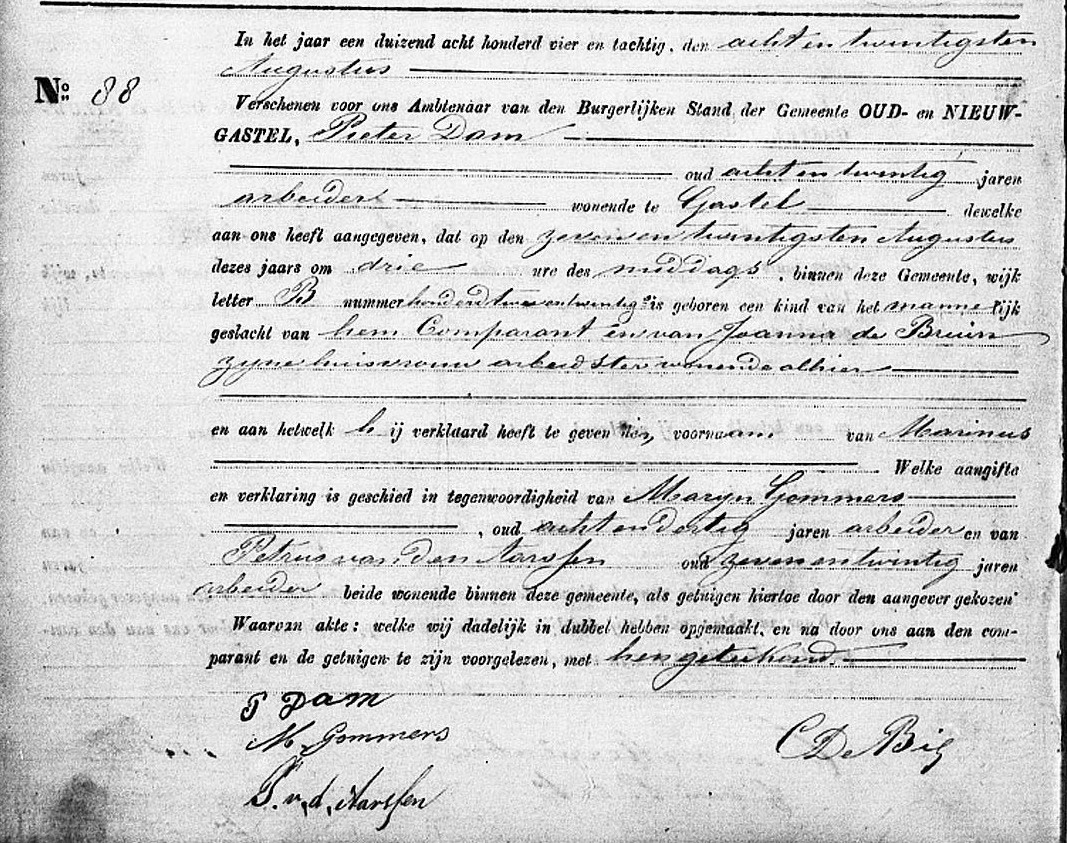 In het jaar een duizend acht honderd vier en tachtig, den acht en twintigsten
Augustus
No 88
Verschenen voor ons Ambtenaar van den Burgerlijken Stand der Gemeente OUD- en NIEUW-
GASTEL, Pieter Dam
oud acht en twintig jaren
arbeider wonende te Gastel dewelke
aan ons heeft aangegeven, dat op den zeven en twintigsten Augustus
dezes jaars om drie ure des middags, binnen deze Gemeente, wijk
letter B nummer honderd twee en twintig is geboren een kind van het mannelijk
geslacht van hem Comparant en van Joanna de Bruin
zijne huisvrouw arbeidster wonende alhier
en aan hetwelk hij verklaard heeft te geven den voornaam van Marinus
Welke aangifte
en verklaring is geschied in tegenwoordigheid van Maryn Gommers
, oud acht en dertig jaren arbeider en van
Petrus van den Aarssen oud zeven en twintig jaren
arbeider beide wonende binnen deze gemeente, als getuigen hiertoe door den aangever gekozen
Waarvan akte: welke wij dadelijk in dubbel hebben opgemaakt, en na door ons aan den com-
parant en de getuigen te zijn voorgelezen, met hen geteekend.
P Dam
M Gommers
C De Bie
P. v. d. Aarssen